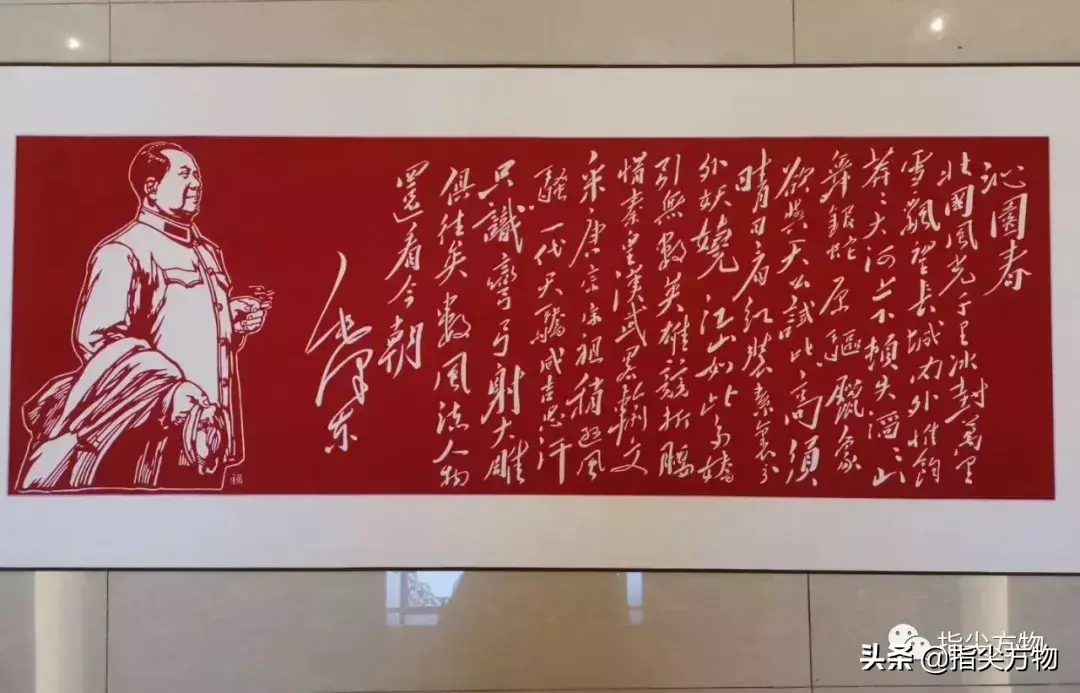 沁園春
北國風光千里冰封萬里
雪飄望長城内外惟餘
莽〻大河上下頓失滔〻山
舞銀蛇原驅臘象
欲與天公試比高須
晴日看紅裝素裹分
外妖嬈江山如此多嬌
引無數英雄競折腰
惜秦皇漢武略輸文
采唐宗宋祖稍遜風
騷一代天驕成吉思汗
只識彎弓射大雕
俱往矣數風流人物
還看今朝
毛澤東
指尖方物
头条 @指尖方物